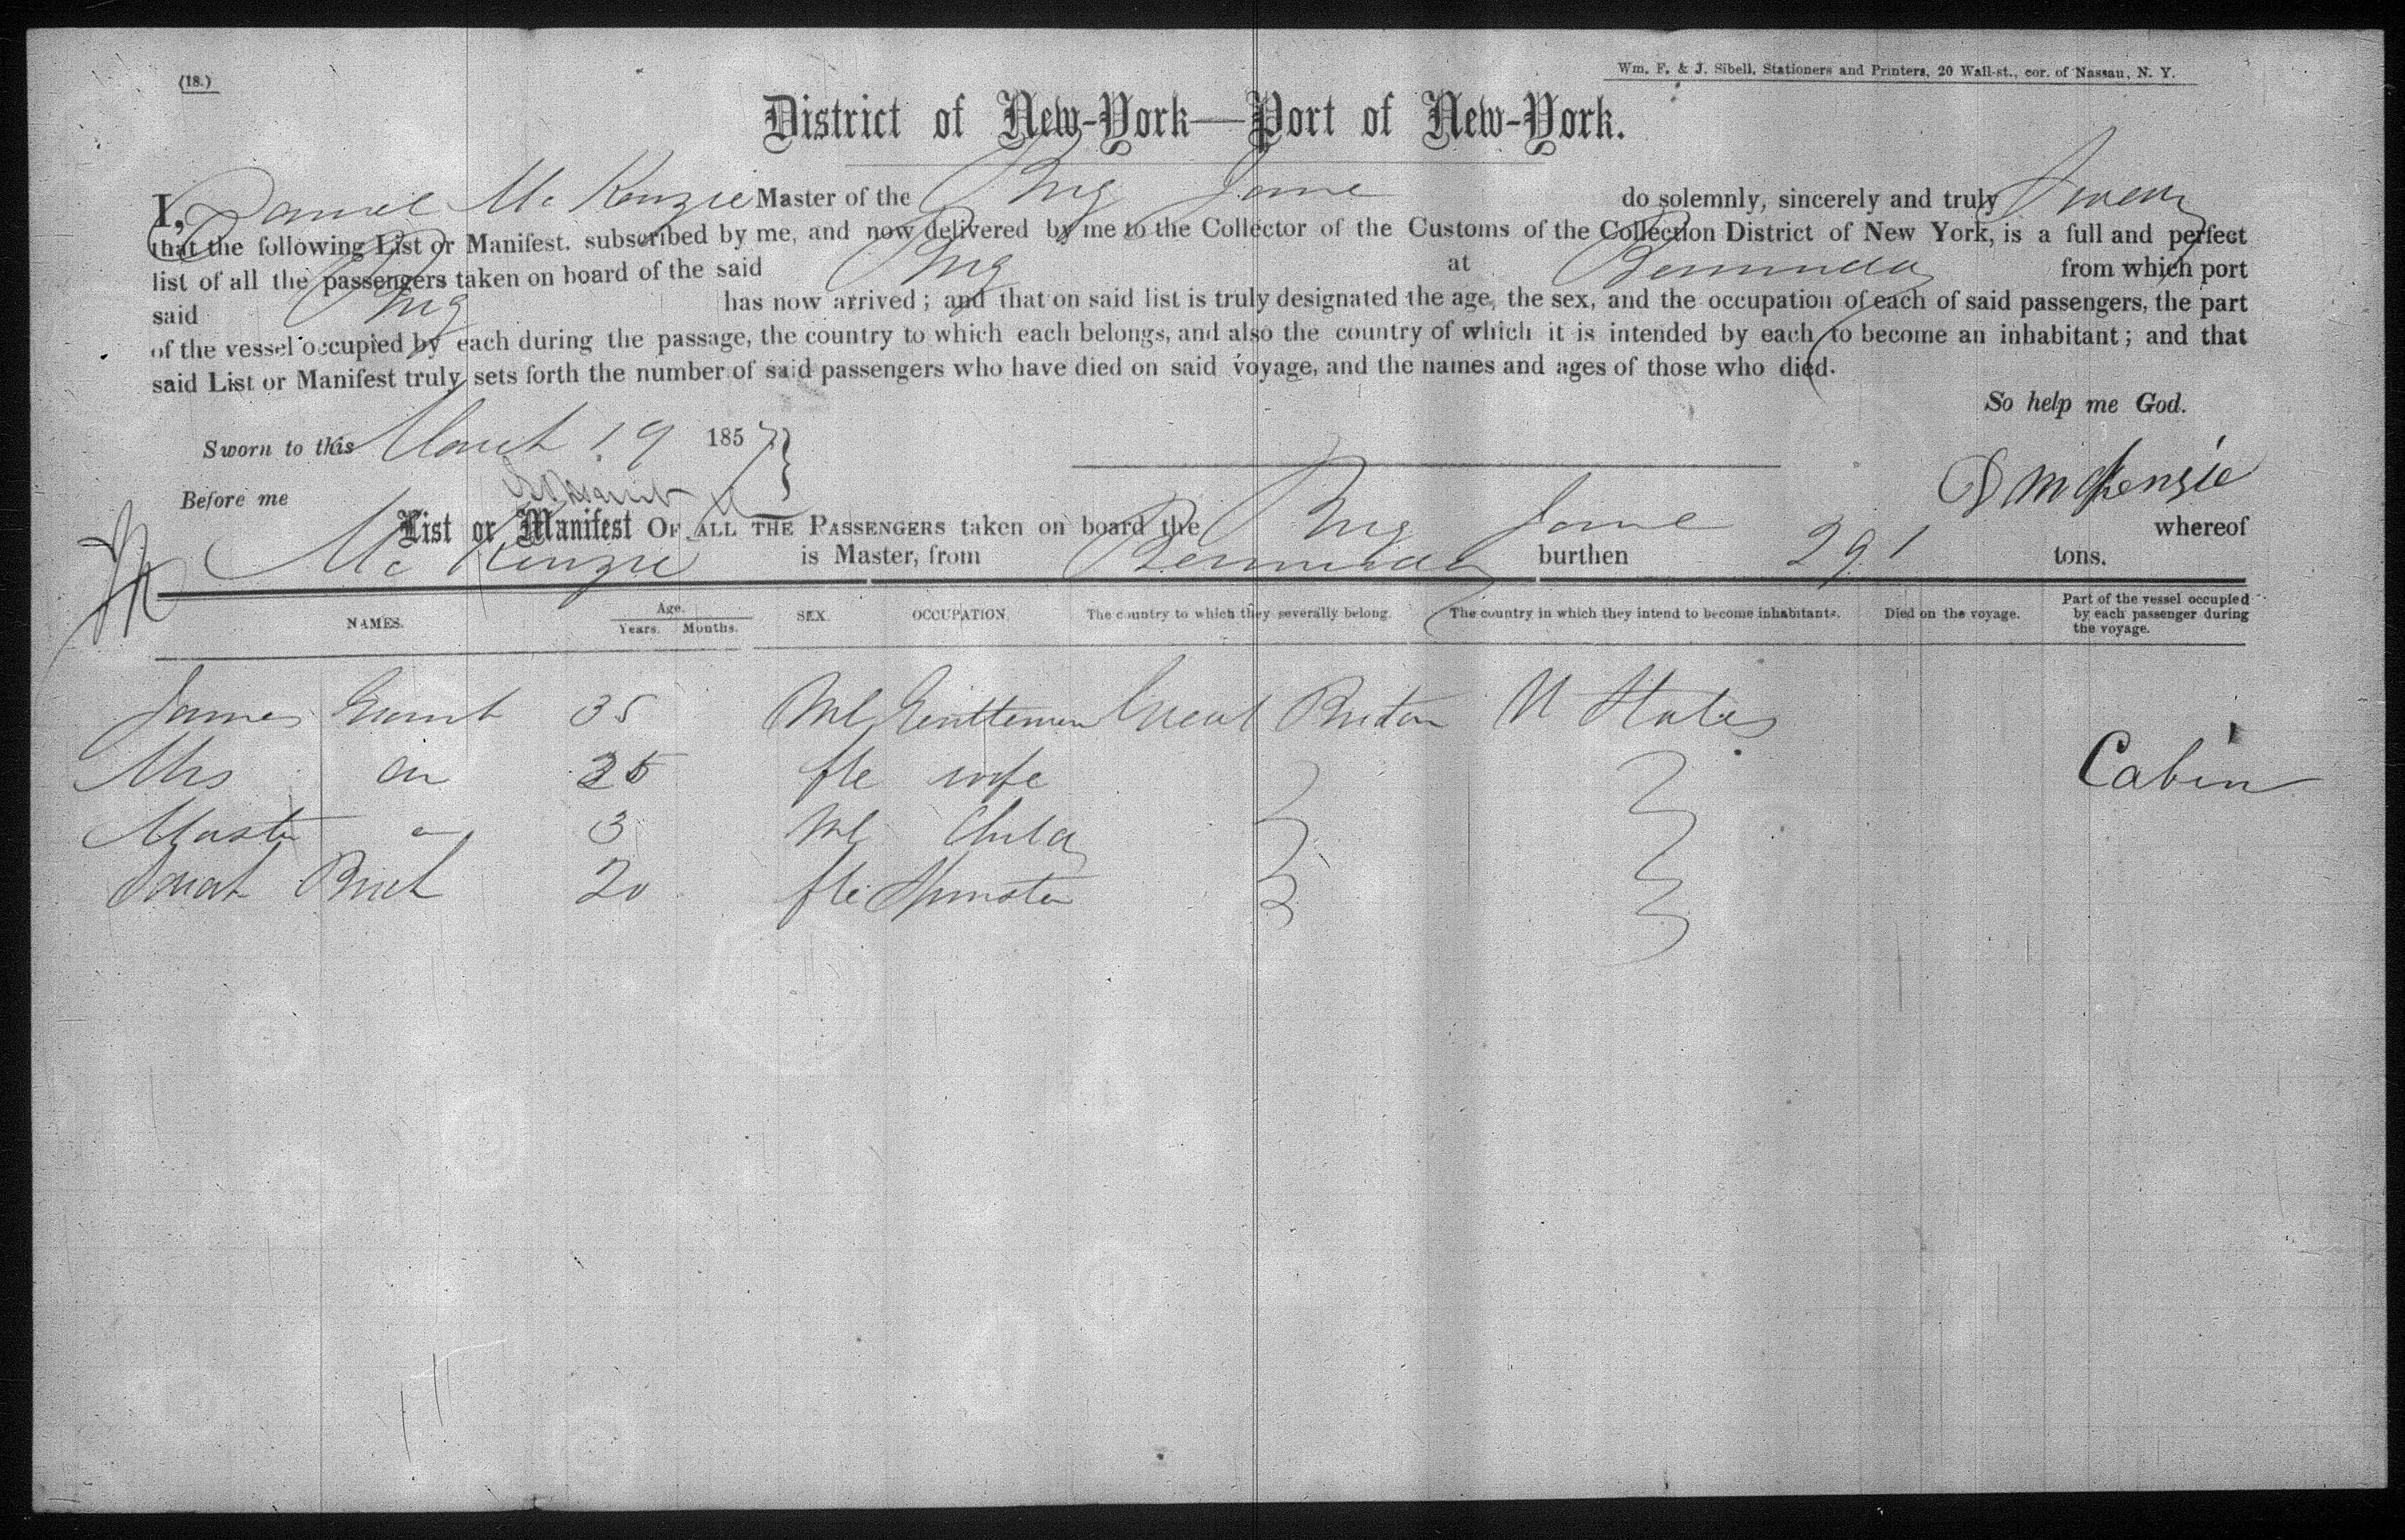 (18.)
Wm. F. & J. Sibell, Stationers and Printers, 20 Wall-st., cor. of Nassau, N. Y.
District of New-York—Port of New-York.
I, Daniel McKenzie Master of the Brig do solemnly, sincerely and truly Swear
that the following List or Manifest, subscribed by me, and now delivered by me to the Collector of the Customs of the Collection District of New York, is a full and perfect
list of all the passengers taken on board of the said Brig at Bermuda from which port
said Brig has now arrived; and that on said list is truly designated the age, the sex, and the occupation of each of said passengers, the part
of the vessel occupied by each during the passage, the country to which each belongs, and also the country of which it is intended by each to become an inhabitant; and that
said List or Manifest truly sets forth the number of said passengers who have died on said voyage, and the names and ages of those who died.
So help me God.
Sworn to this March 19 1857
Before me
D McKenzie
List or Manifest OF ALL THE PASSENGERS taken on board the Brig whereof
McKenzie is Master, from Bermuda burthen 291 tons.
NAMES. Age. Years. Months. SEX. OCCUPATION. The country to which they severally belong. The country in which they intend to become inhabitants. Died on the voyage. Part of the vessel occupied by each passenger during the voyage.
James 35 Ml Gentleman Great Britan U States
Mrs 25 fle wife Cabin
Master 3 Ml Child
Sarah 20 fle Spinster